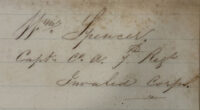 Wm Spencer,
Capt. Co. A. 7th Regt
Invalid Corps.